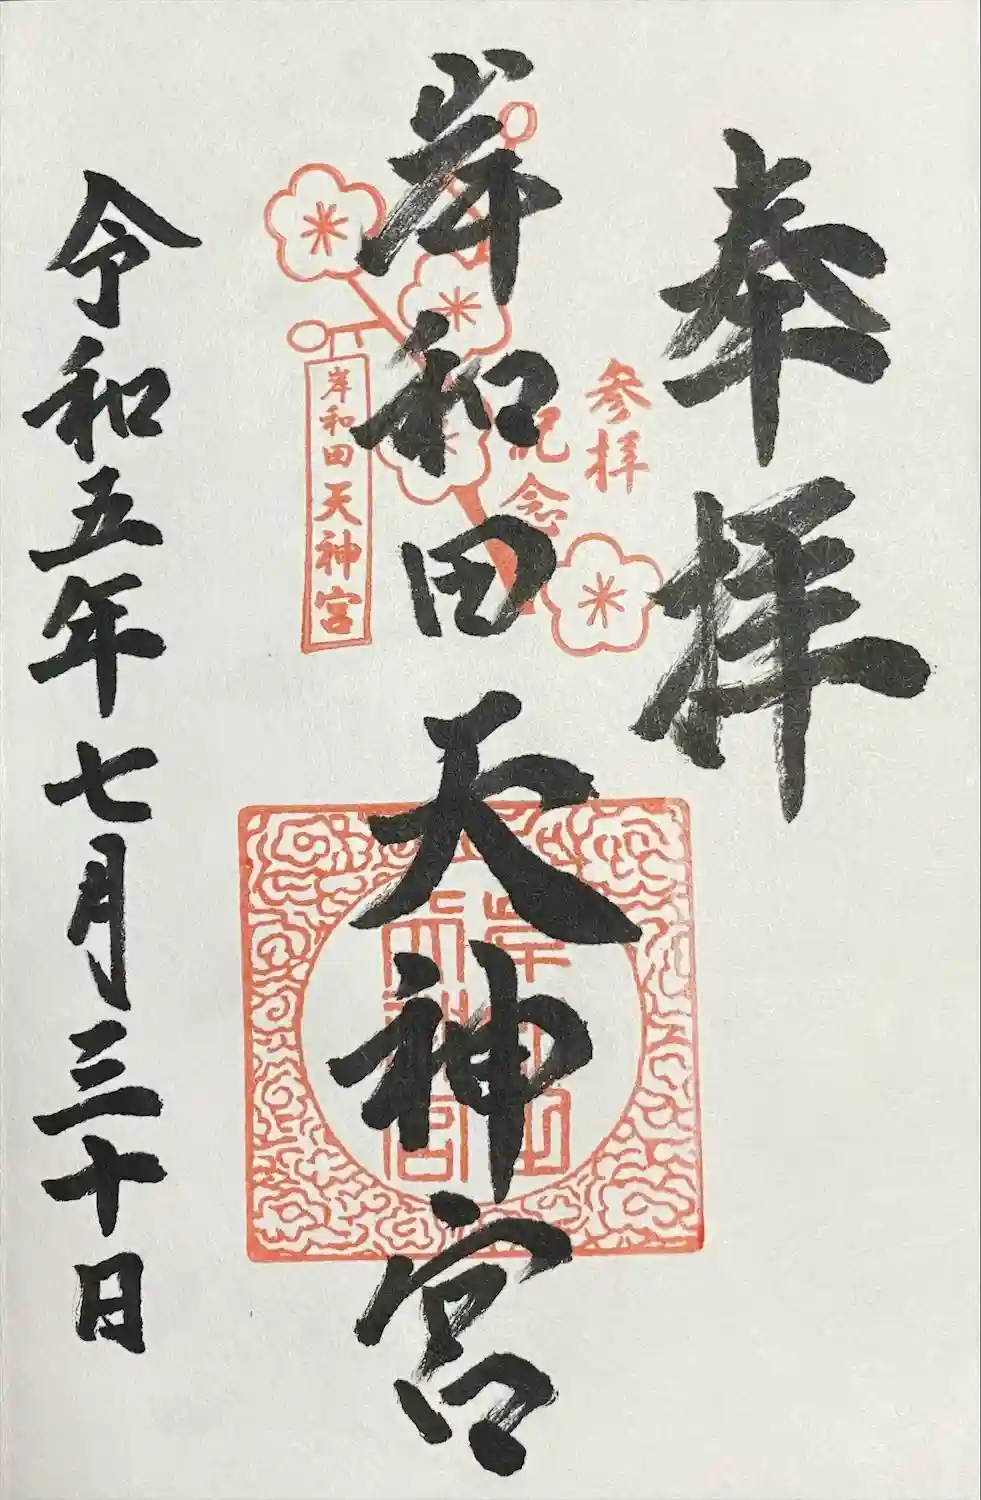 奉拝
参拝
記念
岸和田天神宮
岸和田天神宮
令和五年七月三十日